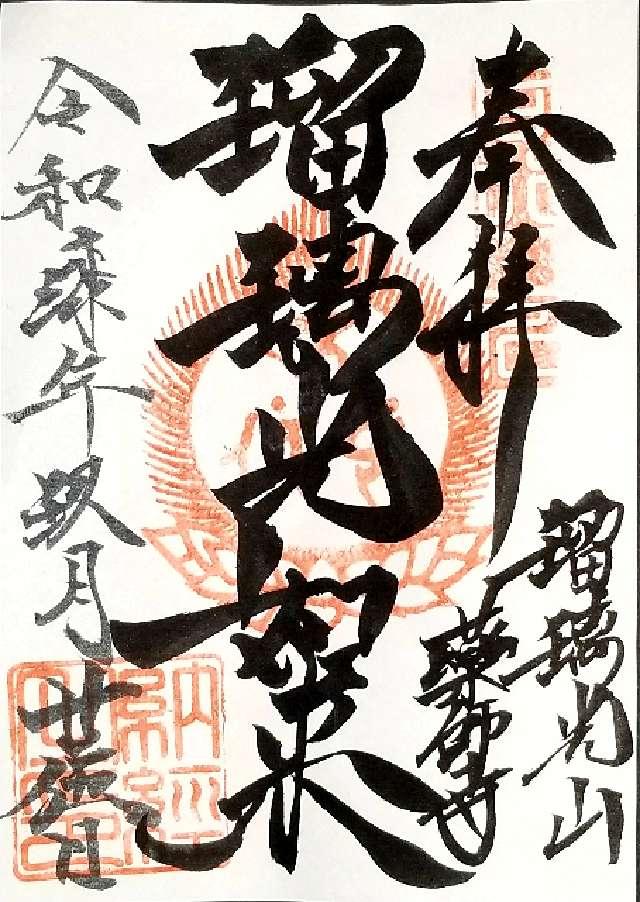 奉拝
瑠璃光山
薬師寺
瑠璃光如来
令和漆年玖月廿日